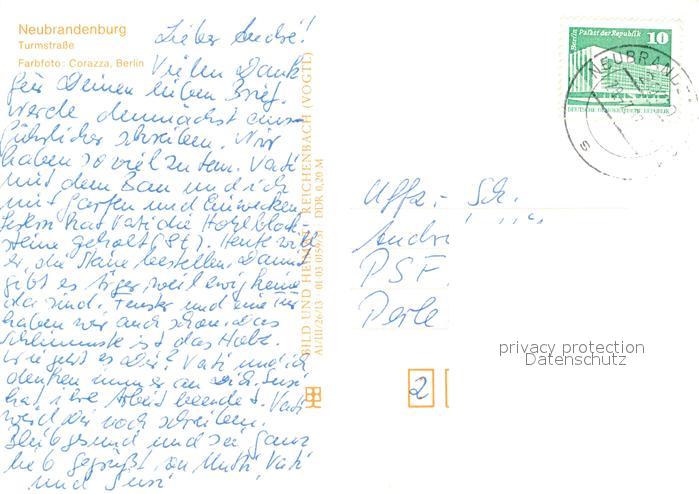 Neubrandenburg
Turmstraße
Farbfoto: Corazza, Berlin
Lieber André!
Vielen Dank
für Deinen lieben Brief.
Werde demnächst aus-
führlicher schreiben. Wir
haben so viel zu tun. Vati
mit dem Bau und ich
mit Garten und Einwecken.
hat Vati die Hohlblock-
steine geholt (St). Heute will
er die Steine bestellen. Damit
gibt es Ärger weil ewig keine
da sind. Fenster und eine Tür
haben wir auch schon. Das
Schlimmste ist das Holz.
Wie geht es Dir? Vati und ich
denken immer an Dich. Susi
hat ihre Arbeit beendet. Vati
wird Dir noch schreiben.
Bleib gesund und sei ganz
lieb gegrüßt von Mutti, Vati
und Susi
BILD UND HEIMAT REICHENBACH (VOGTL)
A1/III/26/13 01 03 0159/31 DDR 0,20 M
Berlin Palast der Republik
10
DEUTSCHE DEMOKRATISCHE REPUBLIK
NEUBRANDE
Uffz.- Sch.
André
PSF
Perle
2
privacy protection
Datenschutz